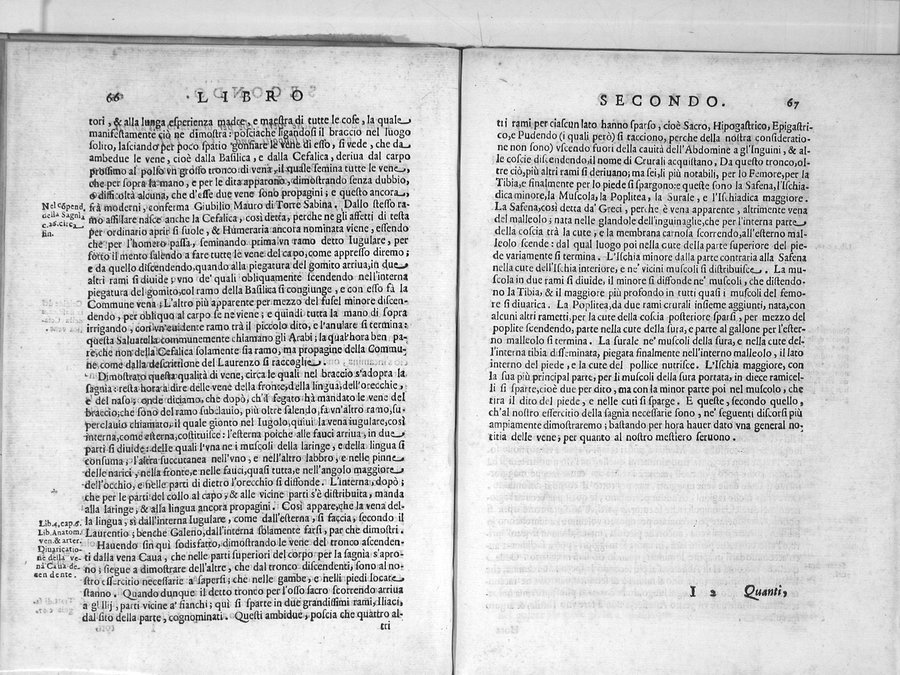 66 LIBRO
tori, & alla lunga esperienza madre, e maestra di tutte le cose, la quale
manifestamente ciò ne dimostra: posciache ligandosi il braccio nel luogo
solito, lasciando per poco spatio gonfiare le vene di esso, si vede, che da
ambedue le vene, cioè dalla Basilica, e dalla Cefalica, deriua dal carpo
prossimo al polso vn grosso tronco di vena, il quale semina tutte le vene,
che per sopra la mano, e per le dita apparono, dimostrando senza dubbio,
o difficoltà alcuna, che d'esse due vene sono propagini; e questo ancora,
frà moderni, conferma Giubilio Mauro di Torre Sabina. Dallo stesso ra-
mo assilare nasce anche la Cefalica, così detta, perche ne gli affetti di testa
per ordinario aprir si suole, & Humeraria ancora nominata viene, essendo
che per l'homero passa, seminando prima vn ramo detto Iugulare, per
sotto il mento salendo a fare tutte le vene del capo, come appresso diremo;
e da quello discendendo, quando alla piegatura del gomito arriua, in due
altri rami si diuide; vno de' quali obliquamente scendendo nell'interna
piegatura del gomito, col ramo della Basilica si congiunge, e con esso fà la
Commune vena; L'altro più apparente per mezzo del fusel minore discen-
dendo, per obliquo al carpo se ne viene; e quindi tutta la mano di sopra
irrigando, con vn'euidente ramo trà il piccolo dito, e l'anulare si termina:
questa Saluatella communemente chiamano gli Arabi; la qual'hora ben pa-
re, che non della Cefalica solamente sia ramo, ma propagine della Commu-
ne come dalla descrittione del Laurenzo si raccoglie.
Dimostrato questa qualità di vene, circa le quali nel braccio s'adopra la
sagnia: resta hora à dire delle vene della fronte, della lingua, dell'orecchie,
e del naso; onde diciamo, che dopò, ch'il fegato hà mandato le vene del
braccio, che sono del ramo subclauio, più oltre salendo, fà vn'altro ramo, su-
perclauio chiamato, il quale gionto nel Iugolo, quiui la vena iugulare, così
interna, come esterna, costituisce: l'esterna poiche alle fauci arriua, in due
parti si diuide: delle quali l'vna ne i muscoli della laringe, e della lingua si
consuma; l'altra succutanea nell'vno, e nell'altro labbro, e nelle pinne
delle narici, nella fronte, e nelle fauci, quasi tutta, e nell'angolo maggiore
dell'occhio, e nelle parti di dietro l'orecchio si diffonde. L'interna, dopò;
che per le parti del collo al capo, & alle vicine parti s'è distribuita, manda
alla laringe, & alla lingua ancora propagini. Così appare, che la vena del-
la lingua, sì dall'interna Iugulare, come dall'esterna, si faccia, secondo il
Laurentio; benche Galeno, dall'interna solamente farsi, par che dimostri.
Hauendo sin qui sodisfatto, dimostrando le vene del tronco ascenden-
ti dalla vena Caua, che nelle parti superiori del corpo per la sagnia s'apro-
no; siegue a dimostrare dell'altre, che dal tronco discendenti, sono al no-
stro essercitio necessarie a sapersi; che nelle gambe, e nelli piedi locate
stanno. Quando dunque il detto tronco per l'osso sacro scorrendo arriua
a gl'Ilij, parti vicine a' fianchi; quì si sparte in due grandissimi rami, Iliaci,
dal sito della parte, cognominati. Questi ambidue, poscia che quattro al-
tri
Nel cõpend.
della Sagni.
c.26. circa
fin.
Lib.4. cap.6.
Lib. Anatom.
ven. & arter.
Diuaricatio-
ne della ve-
na Caua de-
scendente.
SECONDO. 67
tri rami per ciascun lato hanno sparso, cioè Sacro, Hipogastrico, Epigastri-
co, e Pudendo (i quali però) si tacciono, perche della nostra consideratio-
ne non sono) vscendo fuori della cauità dell'Abdomine a gl'Inguini, & al-
le coscie discendendo, il nome di Crurali acquistano, Da questo tronco, ol-
tre ciò, più altri rami si deriuano; ma sei, li più notabili, per lo Femore, per la
Tibia, e finalmente per lo piede si spargono: e queste sono la Safena, l'Ischia-
dica minore, la Muscola, la Poplitea, la Surale, e l'Ischiadica maggiore.
La Safena, così detta da' Greci, perche è vena apparente, altrimente vena
del malleolo; nata nelle glandole dell'inguinaglie, che per l'interna parte
della coscia trà la cute, e la membrana carnosa scorrendo, all'esterno mal-
leolo scende: dal qual luogo poi nella cute della parte superiore del pie-
de variamente si termina. L'Ischia minore dalla parte contraria alla Safena
nella cute dell'Ischia interiore, e ne' vicini muscoli si distribuisce. La mu-
scola in due rami si diuide, il minore si diffonde ne' muscoli, che distendo-
no la Tibia, & il maggiore più profondo in tutti quasi i muscoli del femo-
re si diuarica. La Poplitea, da due rami crurali insieme aggiunti, nata, con
alcuni altri rametti, per la cute della coscia posteriore sparsi, per mezzo del
poplite scendendo, parte nella cute della sura, e parte al gallone per l'ester-
no malleolo si termina. La surale ne' muscoli della sura, e nella cute del-
l'interna tibia disseminata, piegata finalmente nell'interno malleolo, il lato
interno del piede, e la cute del pollice nutrisce. L'Ischia maggiore, con
la sua più principal parte, per li muscoli della sura portata, in diece ramicel-
li si sparte, cioè due per dito, ma con la minor parte poi nel muscolo, che
tira il dito del piede, e nelle cuti si sparge. E queste, secondo quello,
ch'al nostro essercitio della sagnia necessarie sono, ne' seguenti discorsi più
ampiamente dimostraremo; bastando per hora hauer dato vna general no-
titia delle vene, per quanto al nostro mestiero seruono.
I 2 Quanti,